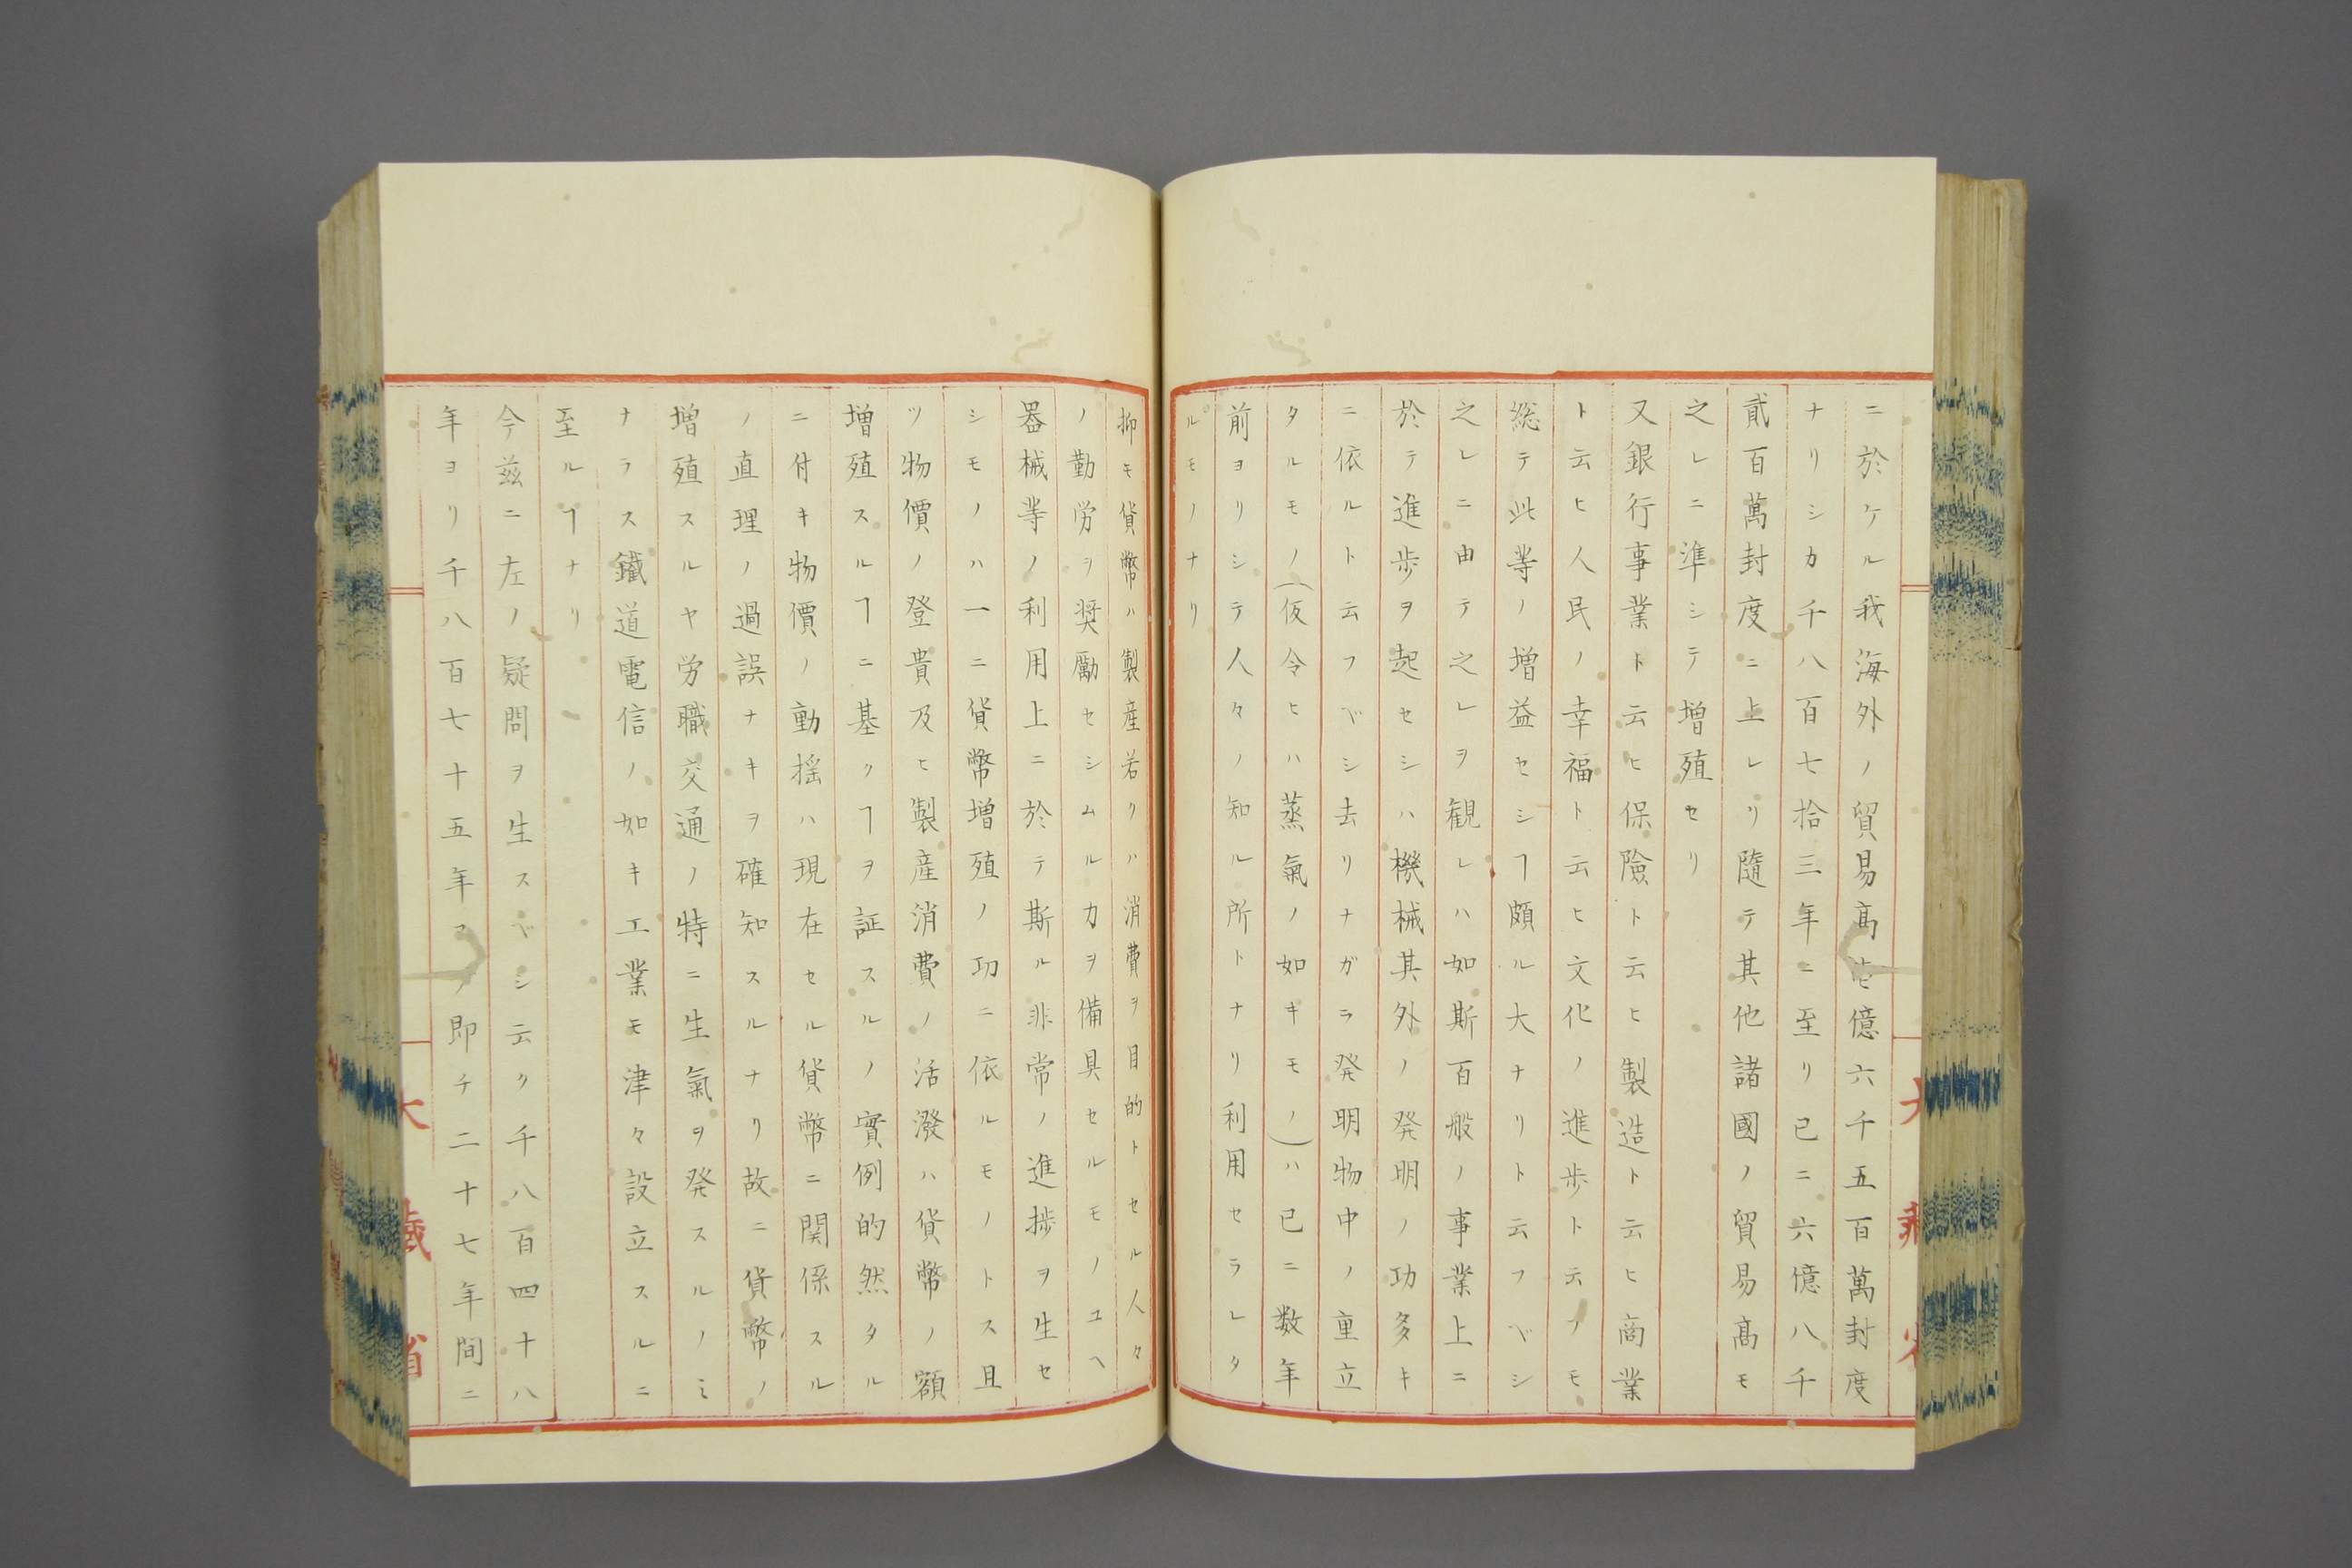 ニ於ケル我海外ノ貿易高壱億六千五百萬封度
ナリシカ千八百七拾三年ニ至リ已ニ六億八千
貳百萬封度ニ上レリ隨テ其他諸國ノ貿易高モ
之レニ準シテ増殖セリ
又銀行事業ト云ヒ保險ト云ヒ製造ト云ヒ商業
ト云ヒ人民ノ幸福ト云ヒ文化ノ進歩ト云ノモ
総テ此等ノ増益セシヿ頗ル大ナリト云フベシ
之レニ由テ之レヲ観レハ如斯百般ノ事業上ニ
於テ進歩ヲ起セシハ機械其外ノ発明ノ功多キ
ニ依ルト云フベシ去リナガラ発明物中ノ重立
タルモノ(仮令ヒハ蒸氣ノ如キモノ)ハ已ニ数年
前ヨリシテ人々ノ知ル所トナリ利用セラレタ
ルモノナリ
抑モ貨幣ハ製産若クハ消費ヲ目的トセル人々
ノ勤労ヲ奨勵セシムル力ヲ備具セルモノユヘ
器械等ノ利用上ニ於テ斯ル非常ノ進捗ヲ生セ
シモノハ一ニ貨幣増殖ノ功ニ依ルモノトス且
ツ物價ノ登貴及ヒ製産消費ノ活潑ハ貨幣ノ額
増殖スルヿニ基クヿヲ証スルノ實例的然タル
ニ付キ物價ノ動揺ハ現在セル貨幣ニ関係スル
ノ直理ノ過誤ナキヲ確知スルナリ故ニ貨幣ノ
増殖スルヤ労職交通ノ特ニ生氣ヲ発スルノミ
ナラス鐵道電信ノ如キ工業モ津々設立スルニ
至ルヿナリ
今茲ニ左ノ疑問ヲ生スベシ云ク千八百四十八
年ヨリ千八百七十五年マノ即チ二十七年間ニ
大藏省